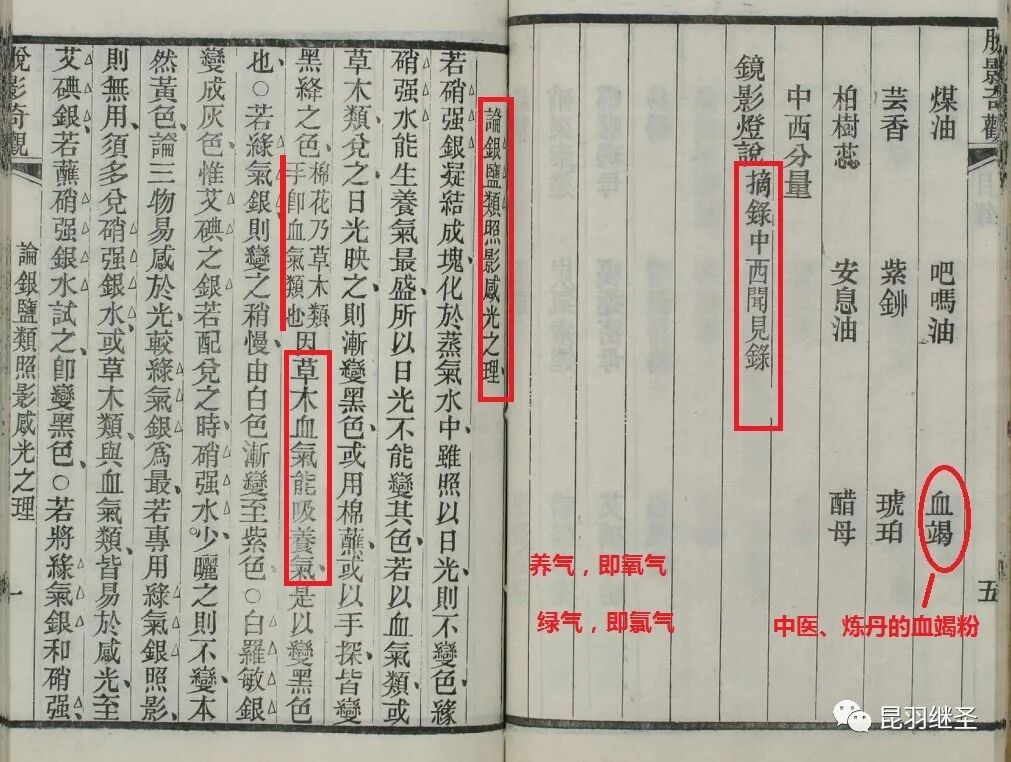 脫影奇觀
五
煤油 吧嗎油 血竭
芸香 紫鉚 琥珀
柏樹蕊 安息油 醋母
中西分量
鏡影燈說 摘錄中西聞見錄
养气，即氧气
绿气，即氯气
中医、炼丹的血竭粉
論銀鹽類照影感光之理
若硝强銀凝結成塊、化於蒸氣水中、雖照以日光、則不變色、緣
硝强水能生養氣最盛、所以日光不能變其色、若以血氣類、或
草木類、兌之日光映之、則漸變黑色、或用棉蘸、或以手探、皆變
黑絳之色、棉花乃草木類手卽血氣類也因草木血氣能吸養氣、是以變黑色
也○若綠氣銀則變之稍慢、由白色漸變至紫色○白羅敏銀
變成灰色、惟艾碘之銀、若配兌之時、硝强水少、曬之則不變本
然黃色、論三物易感於光、較綠氣銀爲最、若專用綠氣銀照影、
則無用、須多兌硝强銀水、或草木類、與血氣類、皆易於感光、至
艾碘銀、若蘸硝强銀水試之、卽變黑色○若將綠氣銀和硝强
脫影奇觀 論銀鹽類照影感光之理 一
昆羽继圣